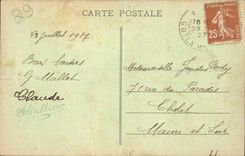 CARTE POSTALE
juillet 1927
Bons baisers
G Millet
Claude
Mademoiselle
71 rue du Paradis
Cholet
Maine et Loire
25